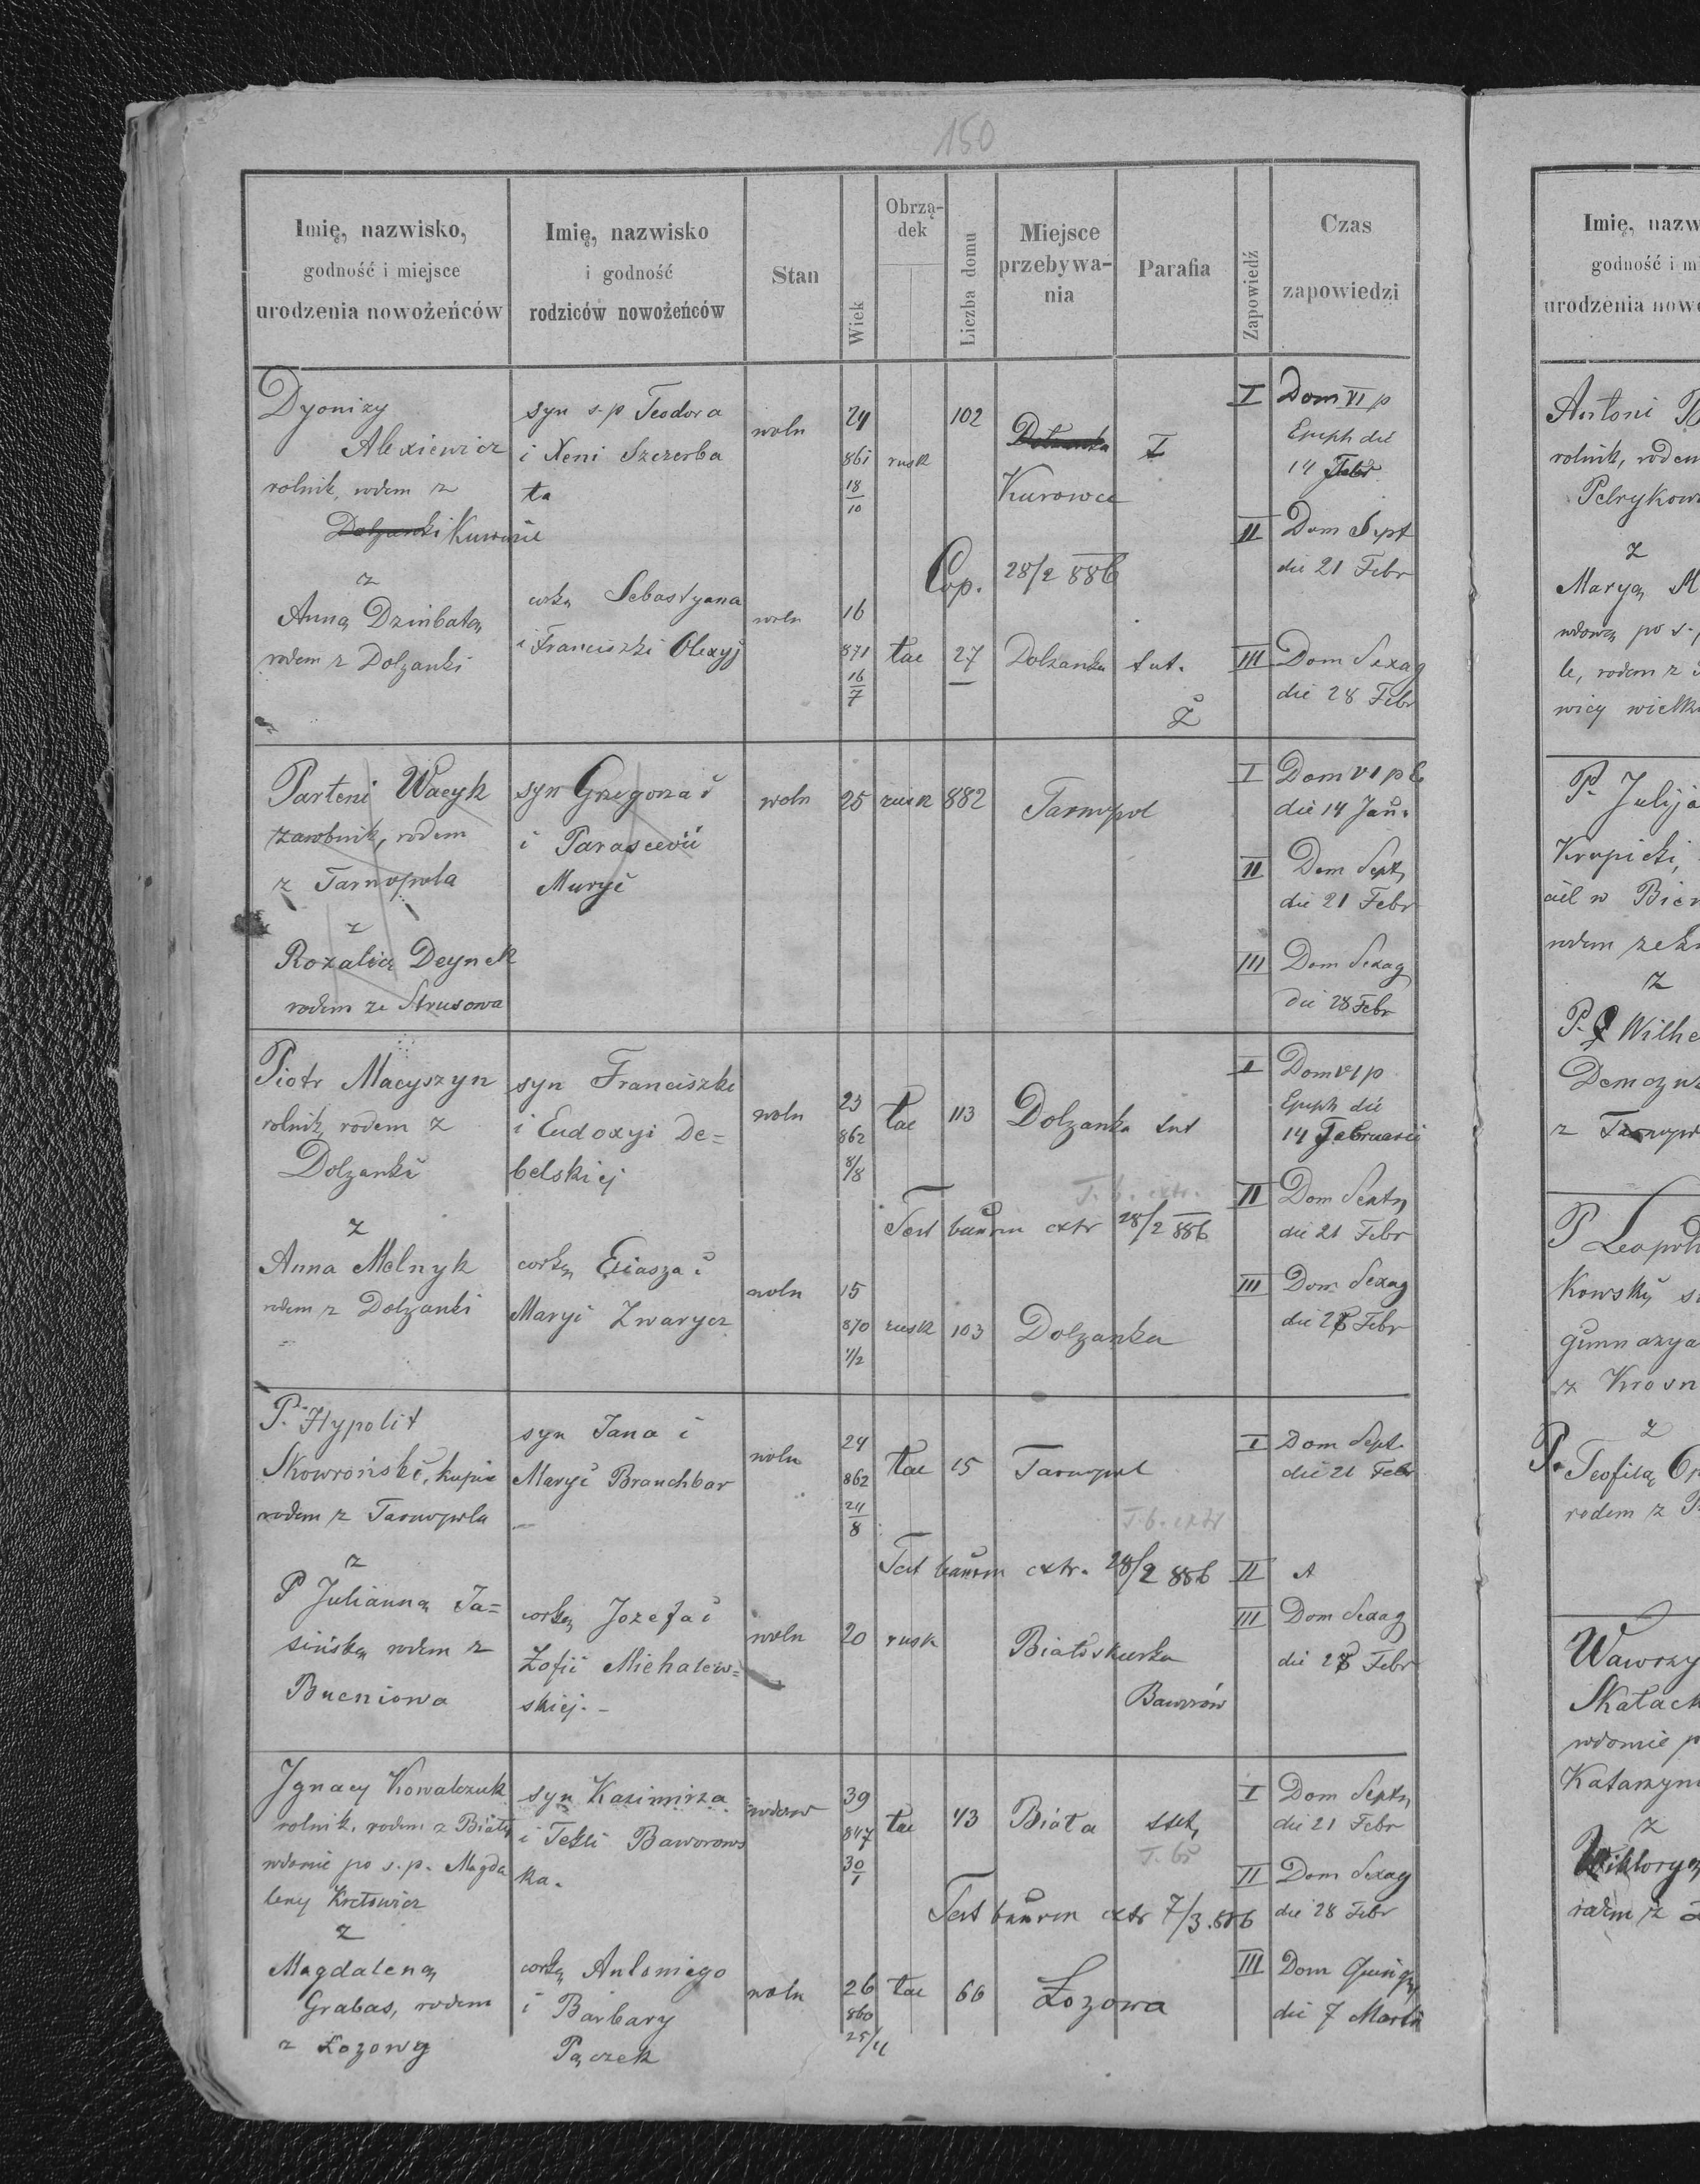 150
Imię, nazwisko,
godność i miejsce
urodzenia nowożeńców
Imię, nazwisko
i godność
rodziców nowożeńców
Stan
Wiek
Obrzą-
dek
Liczba domu
Miejsce
przebywa-
nia
Parafia
Zapowiedź
Czas
zapowiedzi
Dyonizy
Alexiewicz
rolnik, rodem z
Dolzanki
z
Anną Dzinbatą
rodem z Dolzanki
syn s.p Teodora
i Xeni Szczerba
ta
corką Sebastyana
i Franciszki Olexyj
woln
woln
24
861
18
10
16
871
16
7
rusk
łac
102
27
Dolzanka
Kurowce
Cop. 28/2 886
Dolzanka
tut.
I Dom VI p
Epiph die
14 Febr
II Dom Sept
die 21 Febr
III Dom Sexag
die 28 Febr
Parteni Wacyk
zarobnik, rodem
z Tarnopola
z
Rozalią Deynek
rodem ze Strusowa
syn Grzegorza i
i Parascevii
Muryi
woln
25
rusk
882
Tarnopol
I Dom VI p E
die 14 Jan.
II Dom Sept
die 21 Febr
III Dom Sexag
die 28 Febr
Piotr Macyszyn
rolnik, rodem z
Dolzanki
z
Anna Melnyk
rodem z Dolzanki
syn Franciszki
i Eudoxyi De=
belskiej
corką Eliasza i
Maryi Zwarycz
woln
woln
23
862
8/8
15
870
1/2
łac
rusk
113
103
Dolzanka tut
T. b. extr.
Test bannm extr 28/2 886
Dolzanka
I Dom VI p
Epiph die
14 Februarii
II Dom Septu
die 21 Febr
III Dom Sexag
die 28 Febr
P. Hypolit
Skowroński, kupiec
rodem z Tarnopola
z
P Julianną Ja=
sińską rodem z
Bucniowa
syn Jana i
Maryi Branchbar
corką Jozefa i
Zofii Michalew=
skiej.
woln
woln
24
862
24
8
20
łac
rusk
15
Tarnopol
T. b. extr
Test bannm extr. 28/2 886
Białoskurka
Baworów
I Dom Sept
die 21 Febr
II A
III Dom Sexag
die 28 Febr
Ignacy Kowalczuk
rolnik, rodem z Biały
wdowiec po s.p. Magda
leny Kretowicz
z
Magdaleną
Grabas, rodem
z Łozowy
syn Kazimirza
i Tekli Baworows
ka.
corką Antoniego
i Barbary
Pączek
wdow
woln
39
847
30
1
26
860
25/11
łac
łac
43
66
Biała
T. b
Test bannm extr 7/3. 886
Łozowa
I Dom Septu
die 21 Febr
II Dom Sexag
die 28 Febr
III Dom Quinqu
die 7 Martii
Imię, nazw
godność i mi
urodzenia nowo
Antoni
rolnik, rodem
Petrykow
z
Maryą M
wdową po s.
le, rodem z
wicy wielki
P. Julija
Krupicki,
rodem
z
P. Wilhe
z Tarnopo
P Leopol
kowski
gimnazya
z Krosn
z
P. Teofilą
rodem z
Wawrzy
Skałack
wdowie p
Katarzyn
z
Wiktoryą
rodem z